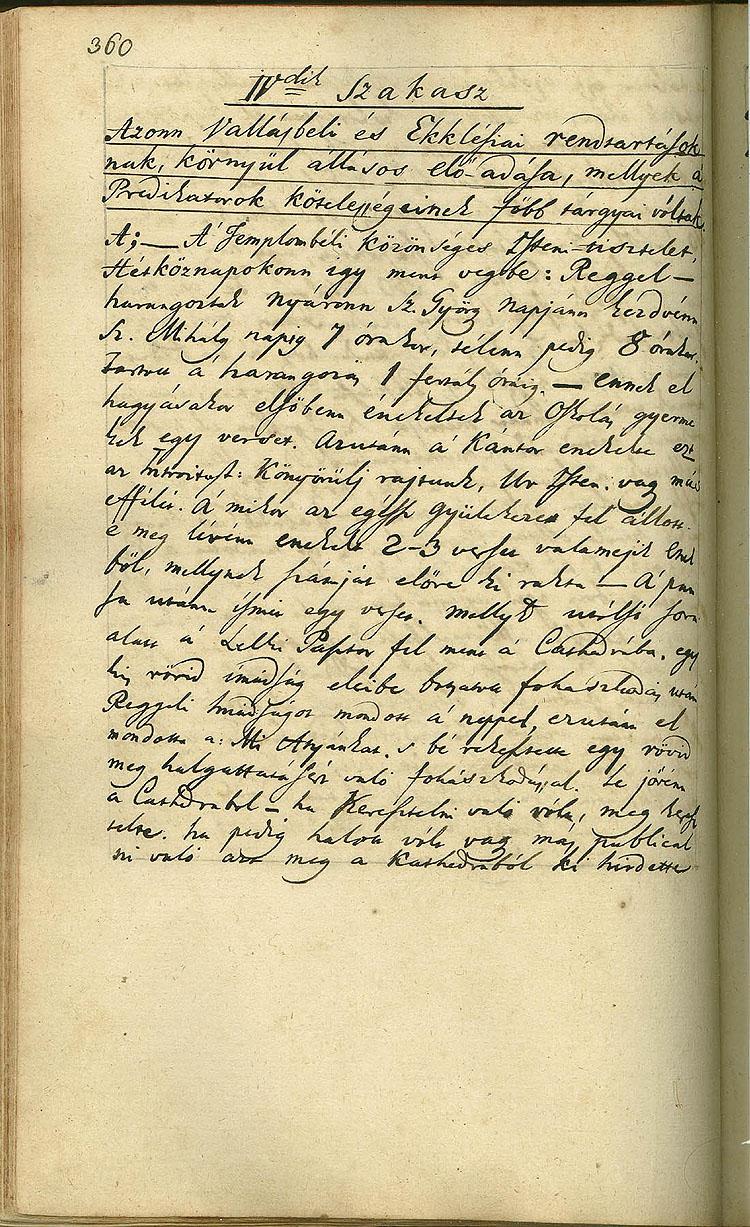 360
IVdik Szakasz
Azonn Vallásbéli és Ekklésiai rendtartások
nak, környül állásos elő-adása, mellyek a
Prédikátorok kötelességeinek főbb tárgyai vóltak.
A; — A' Templombéli közönséges Isteni-tisztelet,
Hétköznapokonn igy ment végbe: Reggel —
harangoztak nyáronn Sz. György napjánn kezdvénn
Sz. Mihály napig 7 órakor, télenn pedig 8 órakor.
Tartva a' harangozás 1 fertály óráig. — ennek el
hagyásakor elsőbenn énekeltek az Oskolás gyerme
kek egy verset. Azutánn a' Kántor énekelte ezt
az Introitust: Könyörülj rajtunk, Ur Isten. vagy más
effélét. A' mikor az egész gyülekezet fel állott
e meg lévénn énekelt 2-3 verset valamejik Ének
ből, mellynek számját előre ki rakta — A' pau
sa utánn ismét egy verset. mellyk utólsó sora
alatt a' Lelki Pásztor fel ment a' Cathedrába. egy
kis rövid imádság eleibe botsátva fohászkodás után
Reggeli Imádságot mondott a' néppel, ezután el
mondotta a: Mi Atyánkat. s bé rekesztette egy rövid
meg halgattatásért való fohászkodással. Le jövén
a Cathedrából — ha Keresztelni való vólt, meg keresz
telte. ha pedig halott vólt vagy más publical
ni való azt meg a Kathedrából ki hirdette